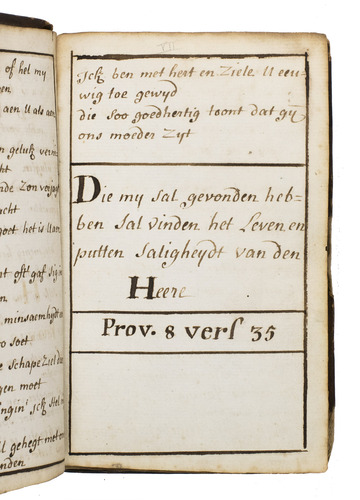 of het my
aen U als aen
en geluk
cht
nde Zon
acht
goet het is U
nt oft gaf
en
minsaemheydt
oo soet
e schape Ziel
gen moet
Jck
U gehegt met
onden
Jck ben met hert en Ziele U eeu-
wig toe gewyd
die soo goedhertig toont dat gy
ons moeder Zyt
Die my sal gevonden heb=
ben sal vinden het Leven en
putten saligheydt van den
Heere
Prov. 8 vers 35